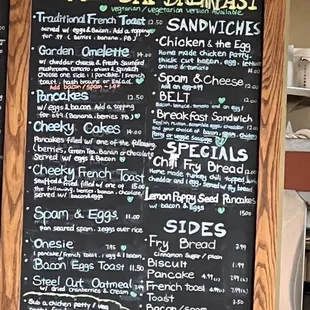 BREAKFAST
vegetarian/vegetarian version available
Traditional French Toast 12.50
Served w/ eggs & Bacon. Add a topping
for .99 ( berries, banana, PBJ )
Garden Omelette
w/ cheddar cheese & fresh sautéed
mushroom, tomato, onions & spinach
choose one side: 1 pancake, 1 french
toast, hash browns or salad
Add bacon / spam
Pancakes 12.50
w/ eggs & bacon. Add a topping
for .99 (Banana, berries, PBJ)
Cheeky Cakes 14.00
Pancakes filled w/ one of the following
(berries, banana or chocolate)
Served w/ eggs & Bacon
Cheeky French Toast
Stuffed & filled w/ one of 15.00
the following: berries, banana, chocolate
Served w/ bacon & eggs
Spam & Eggs 11.00
2 Spam & 2 eggs over rice
Onesie 7.95
1 pancake / french toast, 1 egg & 1 bacon
Bacon Eggs Toast 11.50
Steel Cut Oatmeal
w/ dried cranberries & cream
Sub a chicken patty / veg
SANDWICHES
Chicken & the Egg
Home made chicken patty,
thick cut bacon, egg
Spam & Cheese
Add an egg
BELT
Bacon, lettuce, tomato on an egg
Breakfast Sandwich
and your choice of bacon, spam, chicken
patty or veggie sausage
SPECIALS
Chix Fry Bread 12.00
Home made turkey chili topped w/
cheddar and 1 egg. Served w/ fry bread
Lemon Poppy Seed Pancakes
w/ bacon & eggs 15.00
SIDES
Fry Bread 3.99
Cinnamon Sugar / plain
Biscuit 3.99
Pancake 4.99
French toast 4.99
Toast 3.50
Bacon/Spam